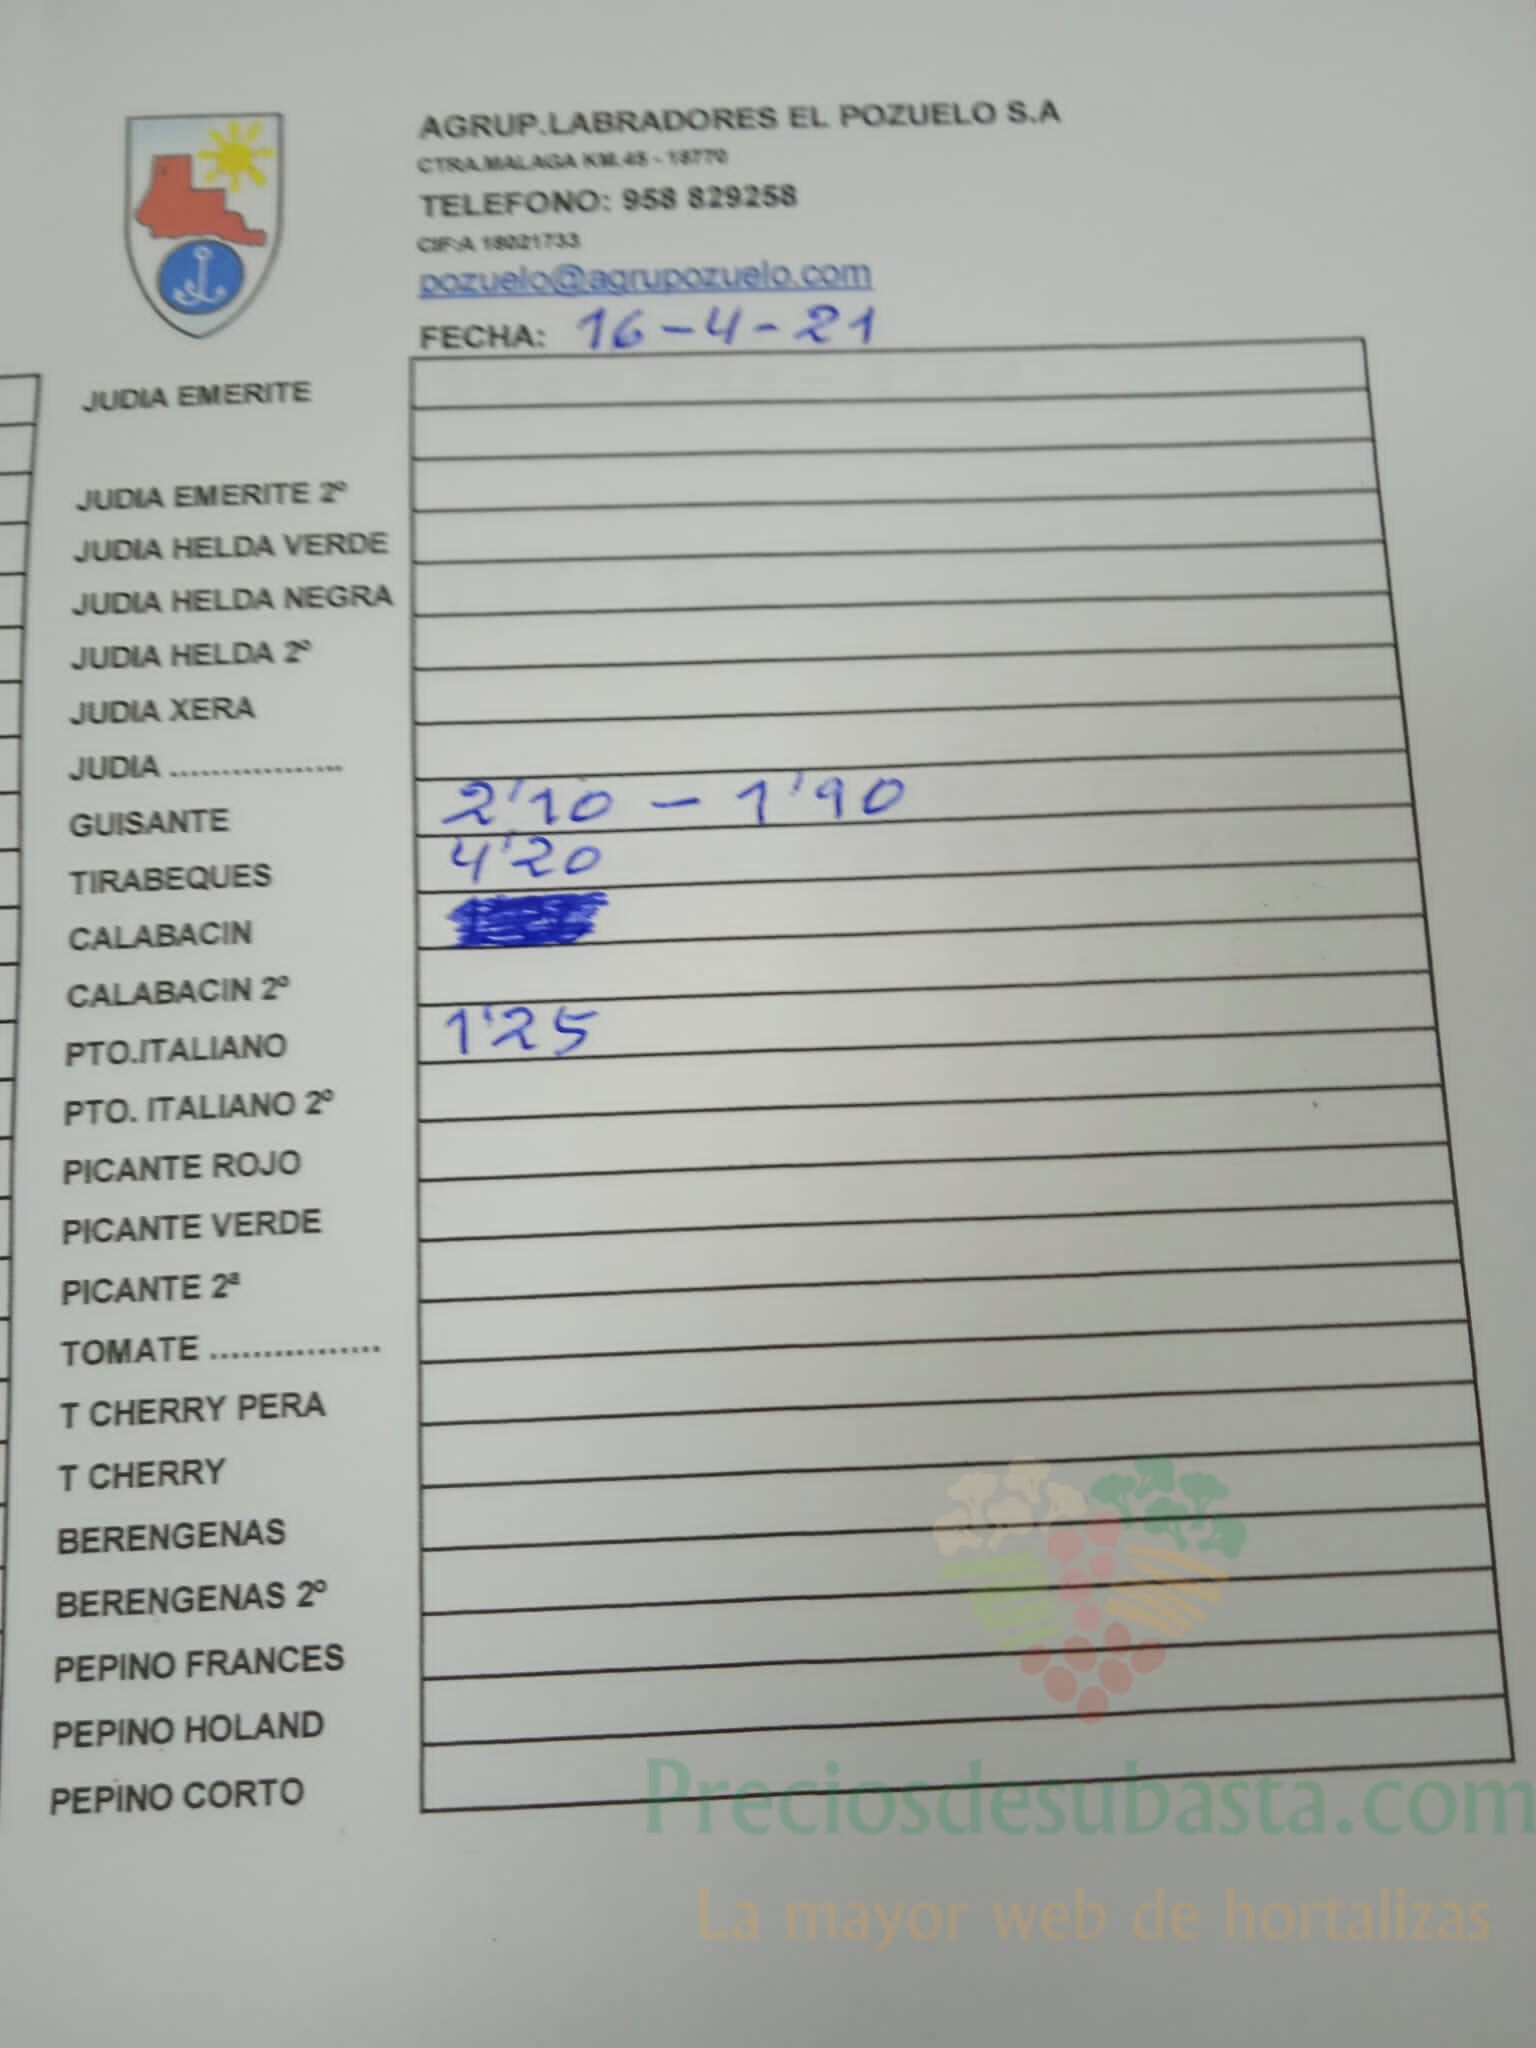 AGRUP.LABRADORES EL POZUELO S.A
CTRA.MALAGA KM.48 - 18770
TELEFONO: 958 829258
CIF:A 18021733
pozuelo@agrupozuelo.com
FECHA: 16-4-21
JUDIA EMERITE
JUDIA EMERITE 2º
JUDIA HELDA VERDE
JUDIA HELDA NEGRA
JUDIA HELDA 2º
JUDIA XERA
JUDIA .................
GUISANTE 2'10 - 1'90
TIRABEQUES 4'20
CALABACIN
CALABACIN 2º
PTO.ITALIANO 1'25
PTO. ITALIANO 2º
PICANTE ROJO
PICANTE VERDE
PICANTE 2ª
TOMATE ................
T CHERRY PERA
T CHERRY
BERENGENAS
BERENGENAS 2º
PEPINO FRANCES
PEPINO HOLAND
PEPINO CORTO
Preciosdesubasta.com
La mayor web de hortalizas